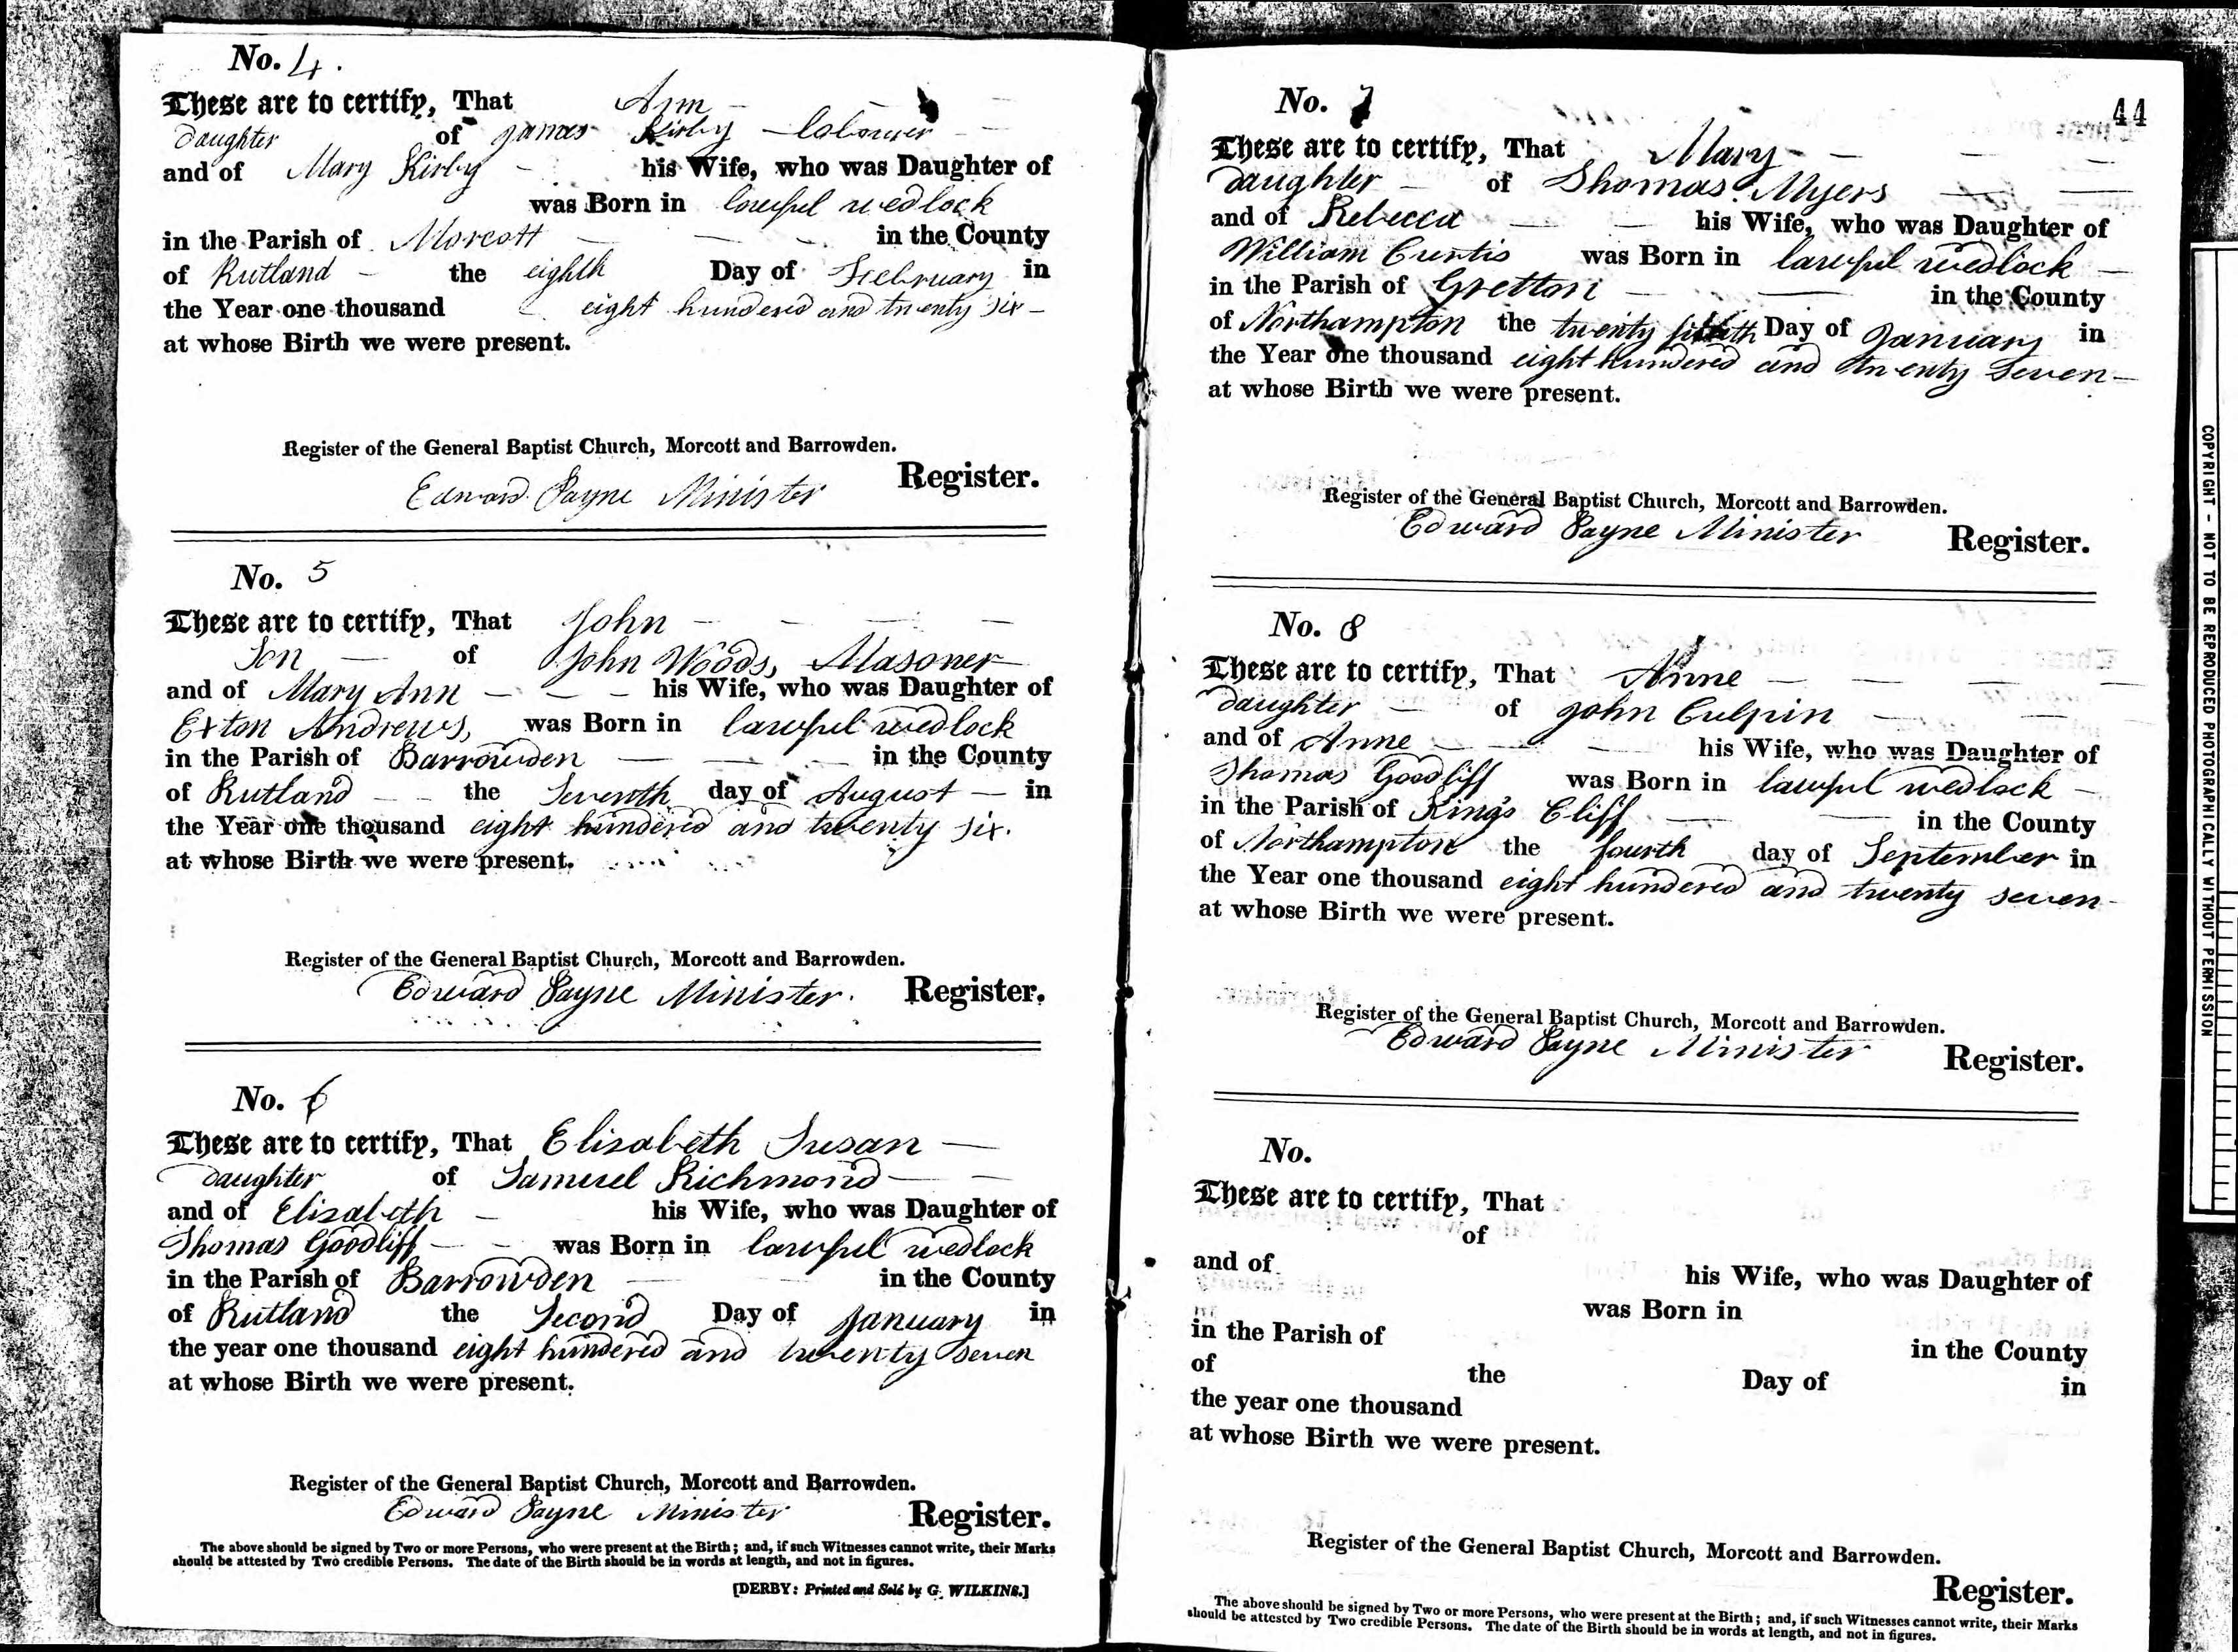 No. 4.
These are to certify, That Ann
daughter of James Kirby labourer
and of Mary Kirby his Wife, who was Daughter of
was Born in lawful wedlock
in the Parish of Morcott in the County
of Rutland the eighth Day of February in
the Year one thousand eight hundered and twenty six
at whose Birth we were present.
Register of the General Baptist Church, Morcott and Barrowden.
Edward Payne Minister Register.
No. 5
These are to certify, That John
Son of John Woods, Masoner
and of Mary Ann his Wife, who was Daughter of
Exton Andrews, was Born in lawful wedlock
in the Parish of Barrowden in the County
of Rutland the Seventh day of August in
the Year one thousand eight hundered and twenty six.
at whose Birth we were present.
Register of the General Baptist Church, Morcott and Barrowden.
Edward Payne Minister. Register.
No. 6
These are to certify, That Elisabeth Susan
daughter of Samuel Richmond
and of Elisabeth his Wife, who was Daughter of
Thomas Goodliff was Born in lawful wedlock
in the Parish of Barrowden in the County
of Rutland the Second Day of January in
the year one thousand eight hundered and twenty seven
at whose Birth we were present.
Register of the General Baptist Church, Morcott and Barrowden.
Edward Payne Minister Register.
The above should be signed by Two or more Persons, who were present at the Birth; and, if such Witnesses cannot write, their Marks
should be attested by Two credible Persons. The date of the Birth should be in words at length, and not in figures.
[DERBY: Printed and Sold by G. WILKINS.]
44
No. 7
These are to certify, That Mary
daughter of Thomas Myers
and of Rebecca his Wife, who was Daughter of
William Curtis was Born in lawful wedlock
in the Parish of Gretton in the County
of Northampton the twenty Day of January in
the Year one thousand eight hundered and twenty seven
at whose Birth we were present.
Register of the General Baptist Church, Morcott and Barrowden.
Edward Payne Minister Register.
No. 8
These are to certify, That Anne
daughter of John Culpin
and of Anne his Wife, who was Daughter of
Thomas Goodliff was Born in lawful wedlock
in the Parish of King's Cliff in the County
of Northampton the fourth day of September in
the Year one thousand eight hundered and twenty seven
at whose Birth we were present.
Register of the General Baptist Church, Morcott and Barrowden.
Edward Payne Minister Register.
No.
These are to certify, That
of
and of his Wife, who was Daughter of
was Born in
in the Parish of in the County
of the Day of in
the year one thousand
at whose Birth we were present.
Register of the General Baptist Church, Morcott and Barrowden.
Register.
The above should be signed by Two or more Persons, who were present at the Birth; and, if such Witnesses cannot write, their Marks
should be attested by Two credible Persons. The date of the Birth should be in words at length, and not in figures.
COPYRIGHT - NOT TO BE REPRODUCED PHOTOGRAPHICALLY WITHOUT PERMISSION